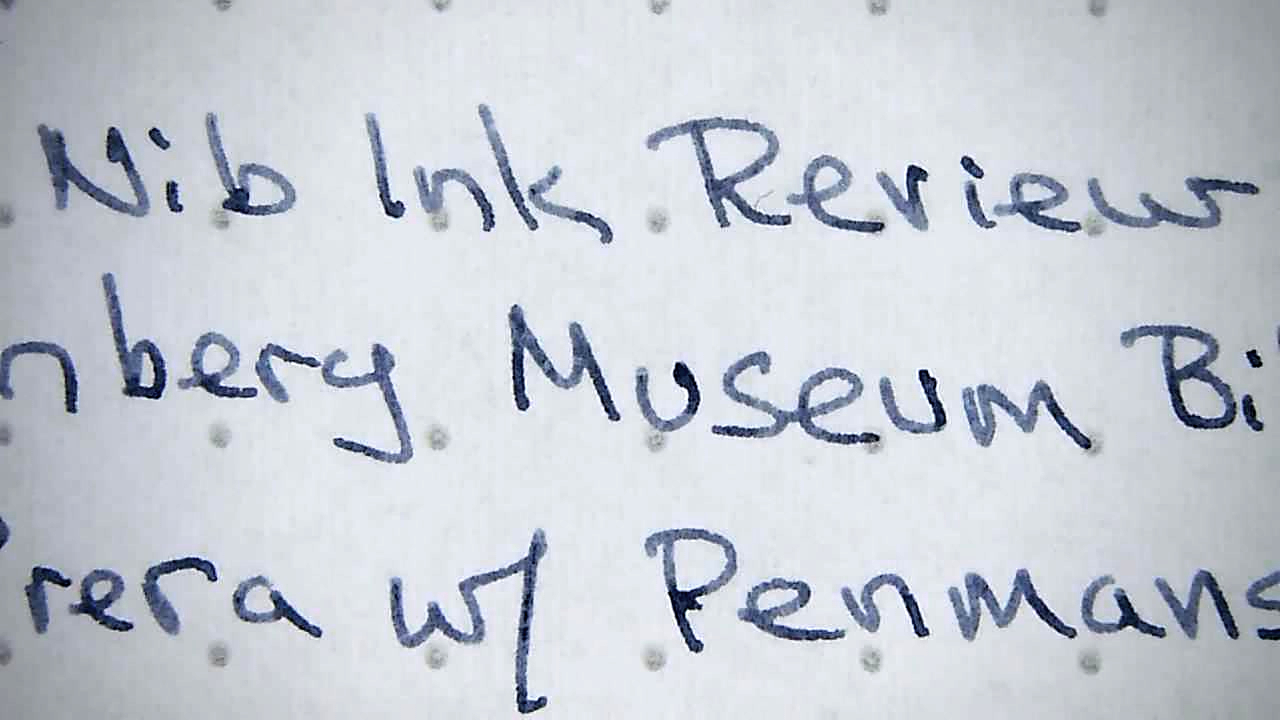 Nib Ink Review
nberg Museum Bi
rera w/ Penmans